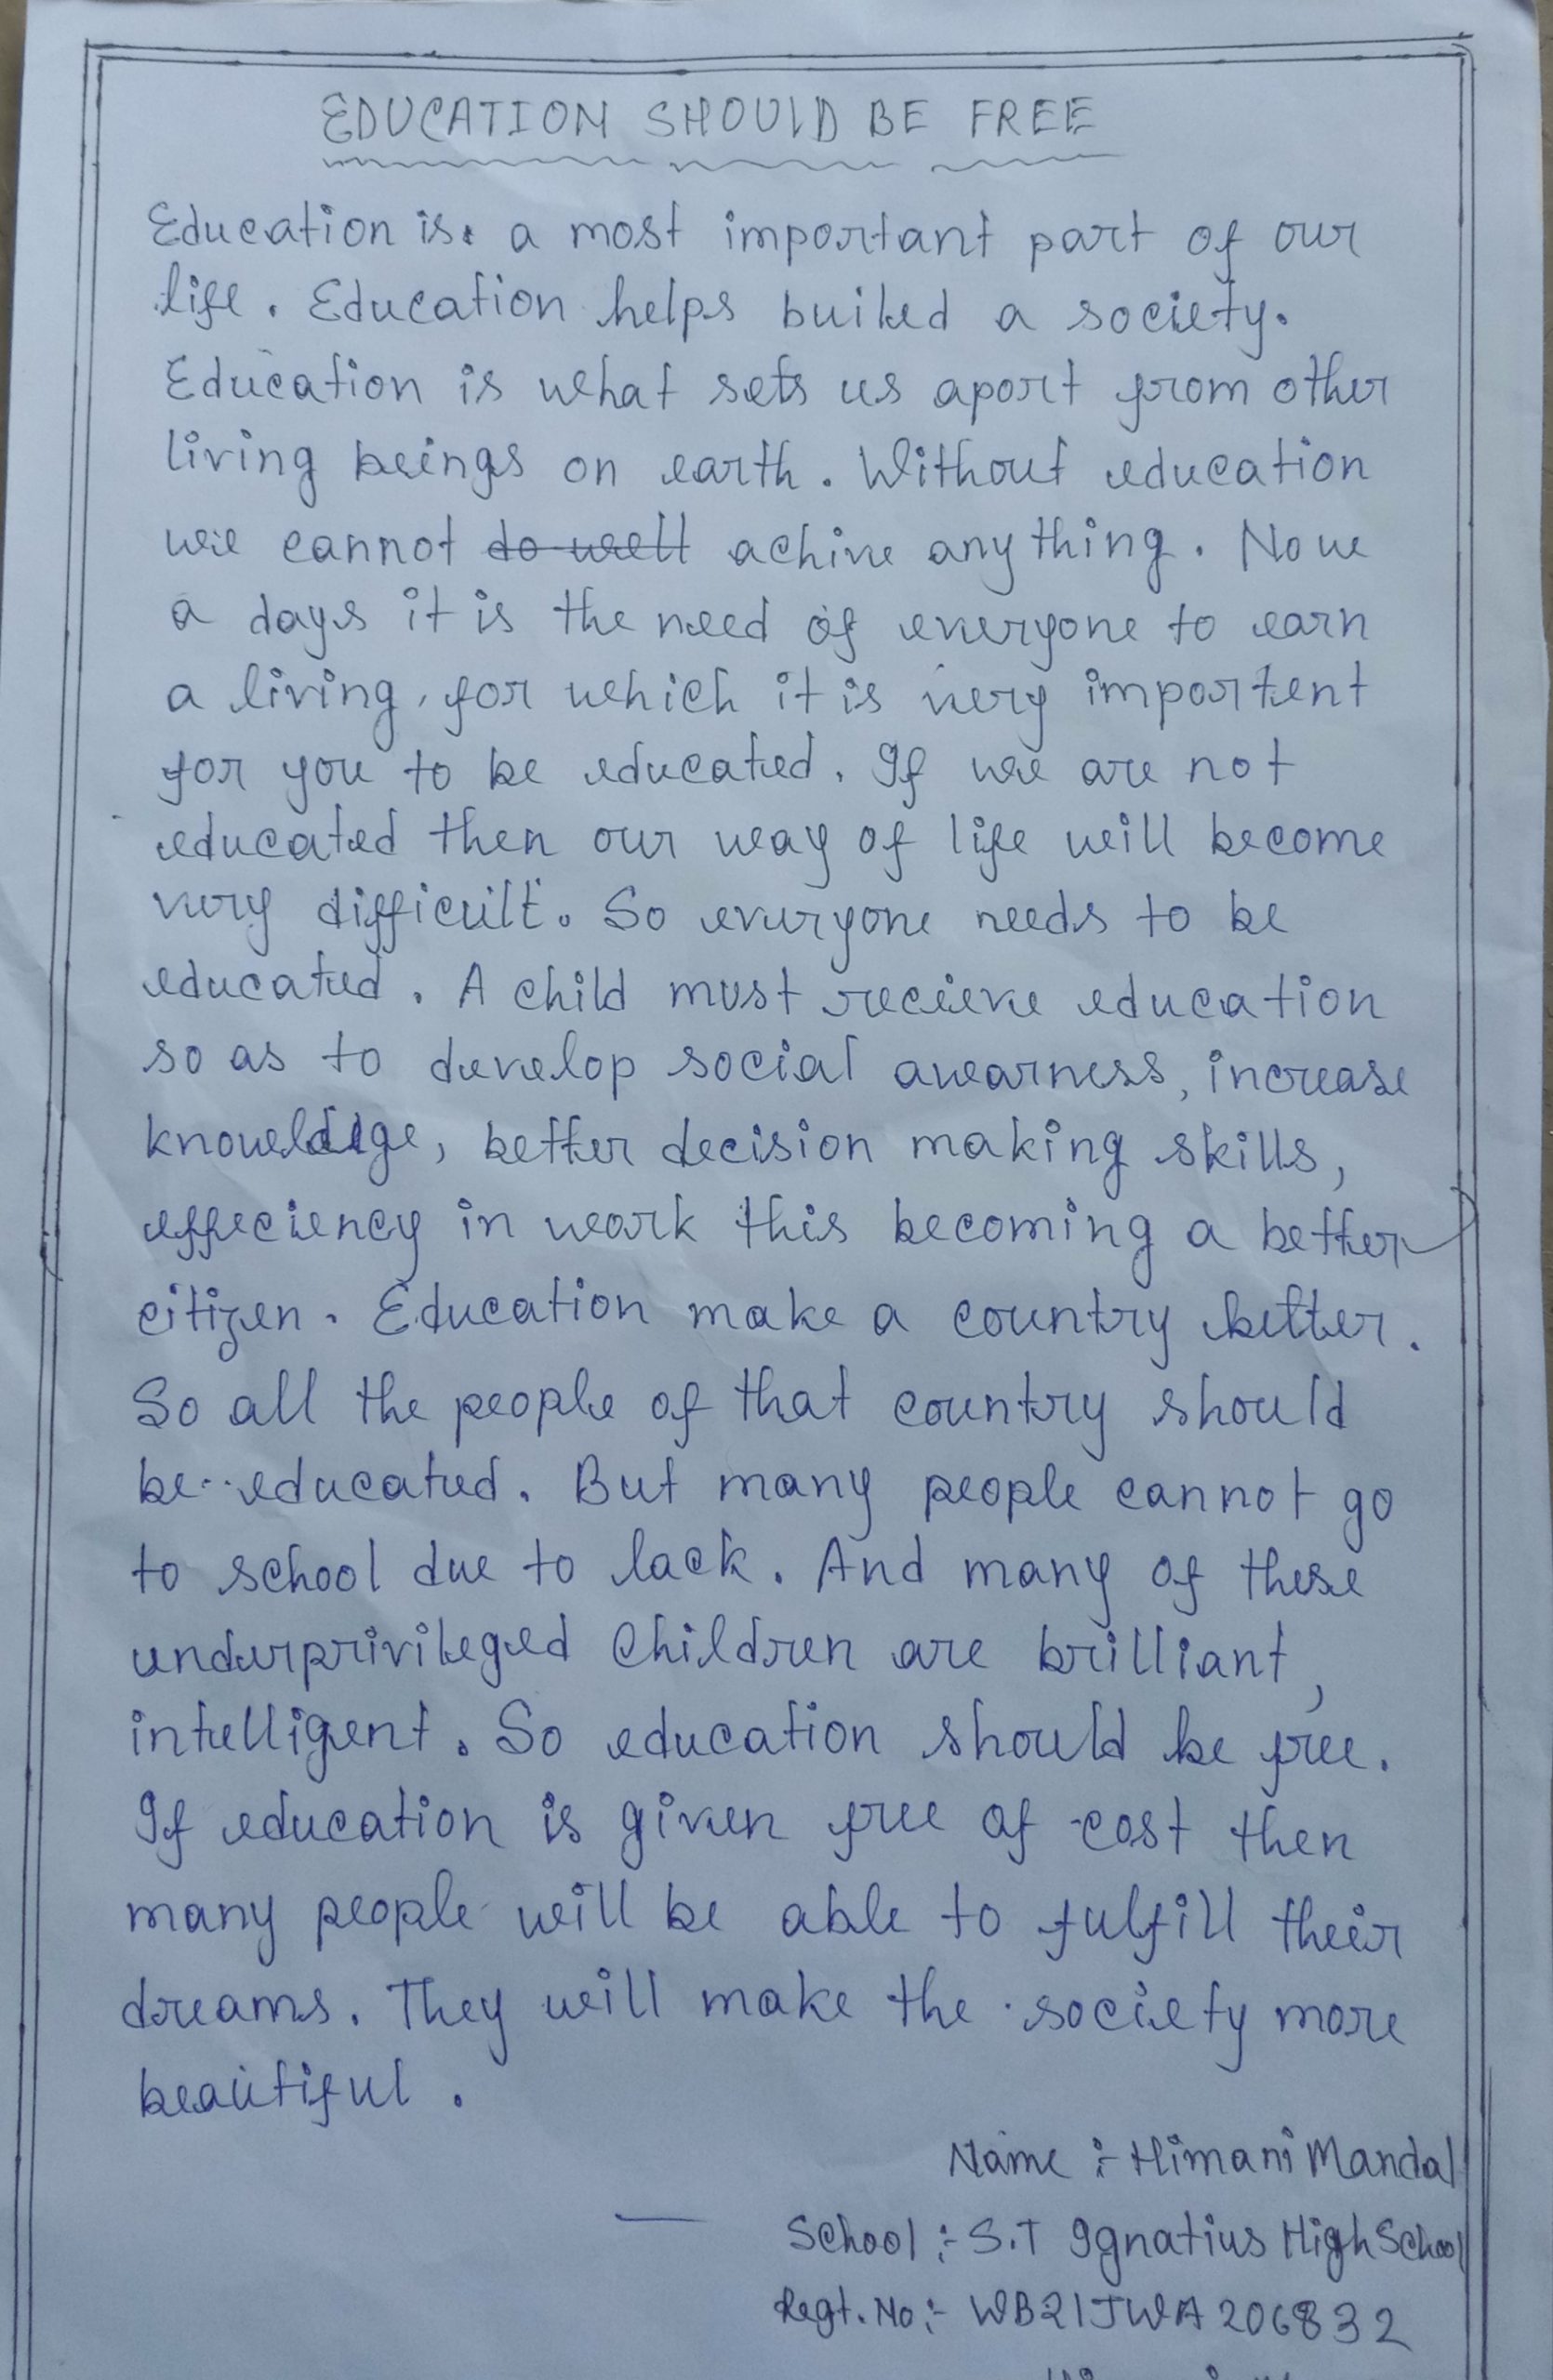 EDUCATION SHOULD BE FREE
Education is a most important part of our
life. Education helps builed a society.
Education is what sets us aport from other
living beings on earth. Without education
we cannot do well achive any thing. Now
a days it is the need of everyone to earn
a living, for which it is very importent
for you to be educated. If we are not
educated then our way of life will become
very difficult. So everyone needs to be
educated. A child must recieve education
so as to develop social awarness, increase
knowledge, better decision making skills,
effeciency in work this becoming a better
citizen. Education make a country better.
So all the people of that country should
be educated. But many people cannot go
to school due to lack. And many of these
underprivileged Children are brilliant,
intelligent. So education should be free.
If education is given free of cost then
many people will be able to fulfill their
dreams. They will make the society more
beautiful.
Name :- Himani Mandal
School :- S.T Ignatius High School
Regt. No :- WB21JWA206832